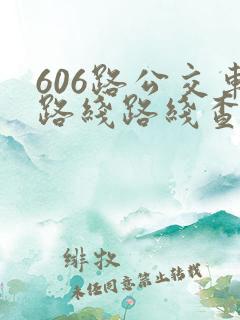 606路公交車
路线路线查
绯牧
未经同意禁止转载